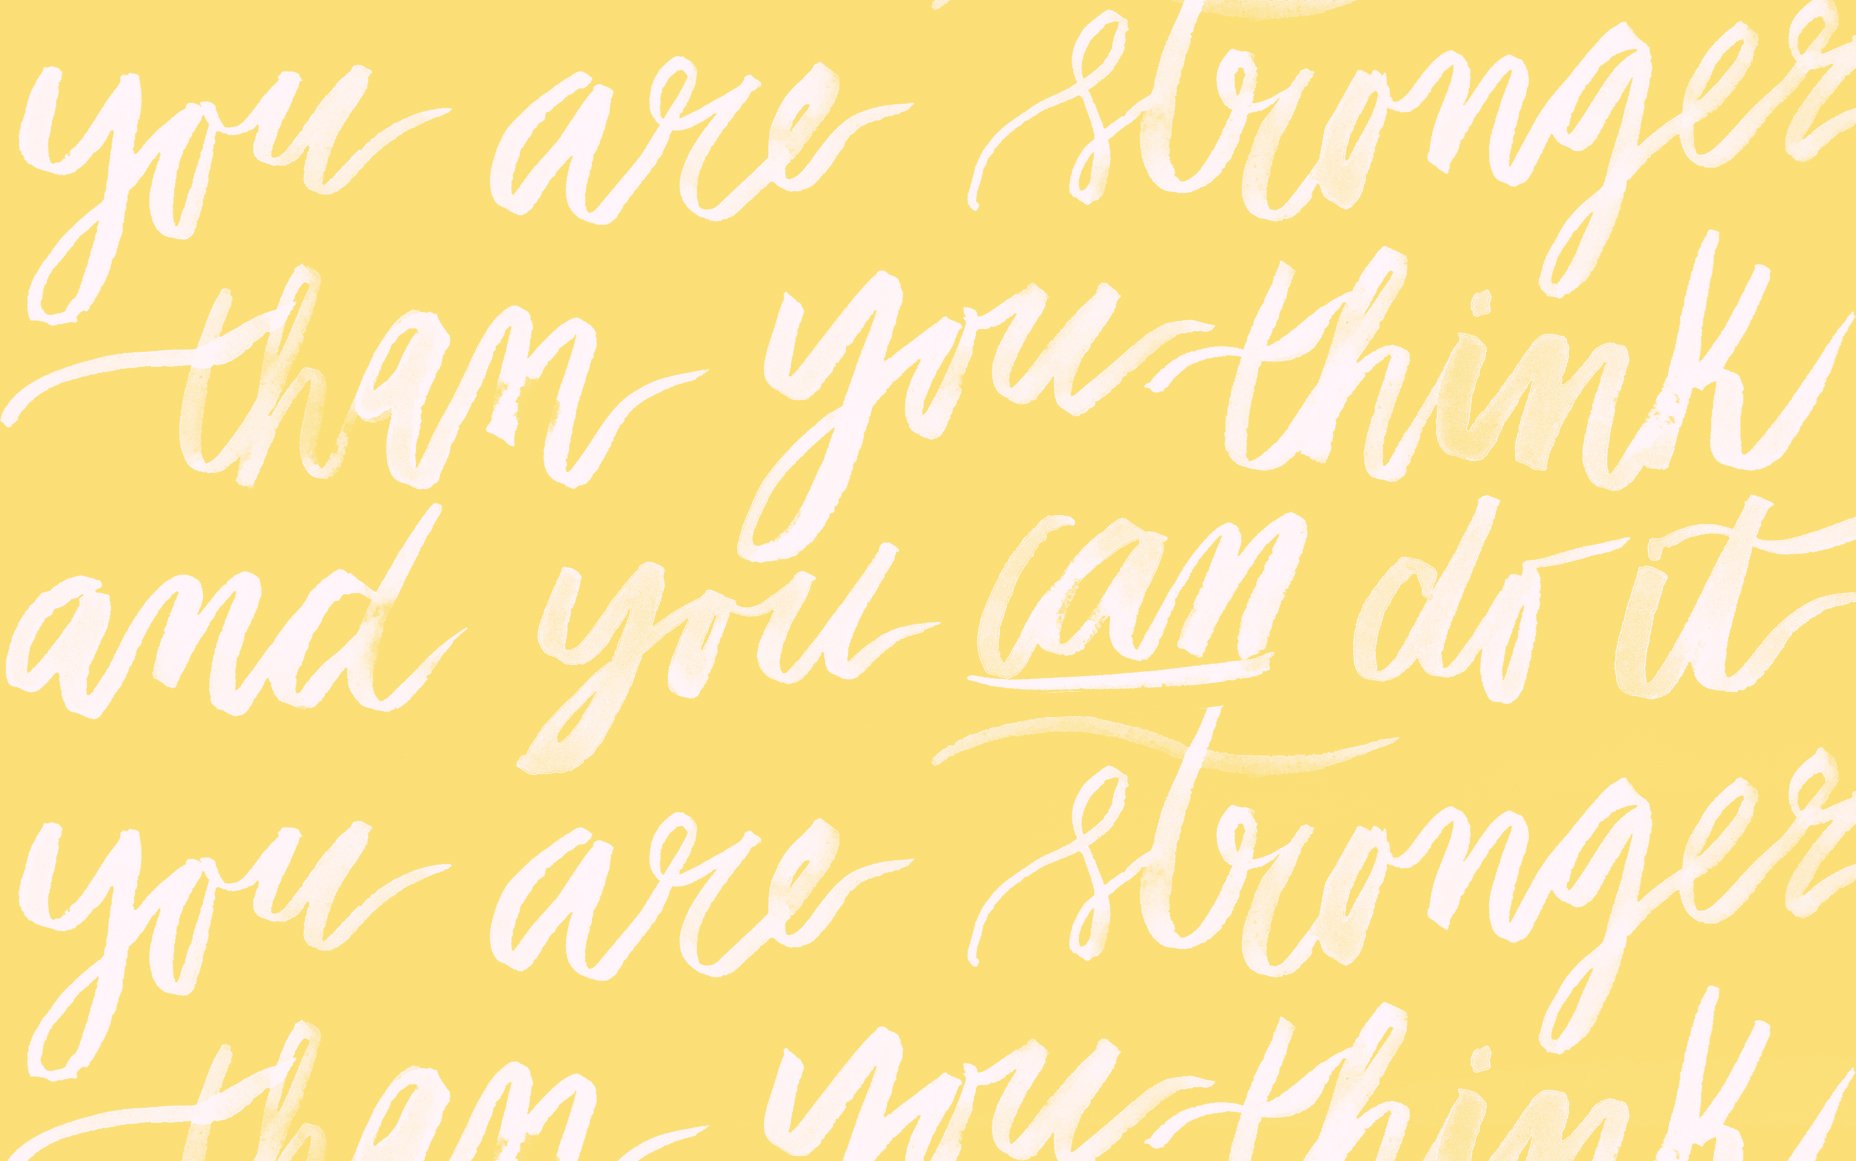 you are stronger
than you think
and you can do it
you are stronger
than you think